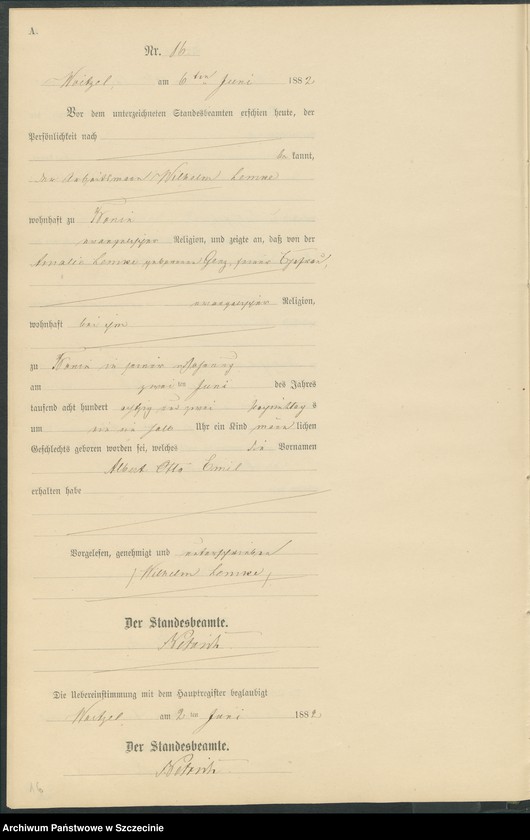 A.
Nr. 16
Woitzel, am 6ten Juni 1882
Vor dem unterzeichneten Standesbeamten erschien heute, der
Persönlichkeit nach
be kannt,
der Arbeitsmann Wilhelm Lemke
wohnhaft zu
evangelischer Religion, und zeigte an, daß von der
Amalia Lemke geborenen seiner Ehefrau,
evangelischer Religion,
wohnhaft bei ihm
zu in seiner Wohnung
am zweiten Juni des Jahres
tausend acht hundert achtzig und zwei Nachmittags
um Uhr ein Kind männ lichen
Geschlechts geboren worden sei, welches die Vornamen
Albert Otto Emil
erhalten habe
Vorgelesen, genehmigt und unterschrieben
Wilhelm Lemke
Der Standesbeamte.
Die Uebereinstimmung mit dem Hauptregister beglaubigt
Woitzel am ten Juni 1882
Der Standesbeamte.
16
Archiwum Państwowe w Szczecinie